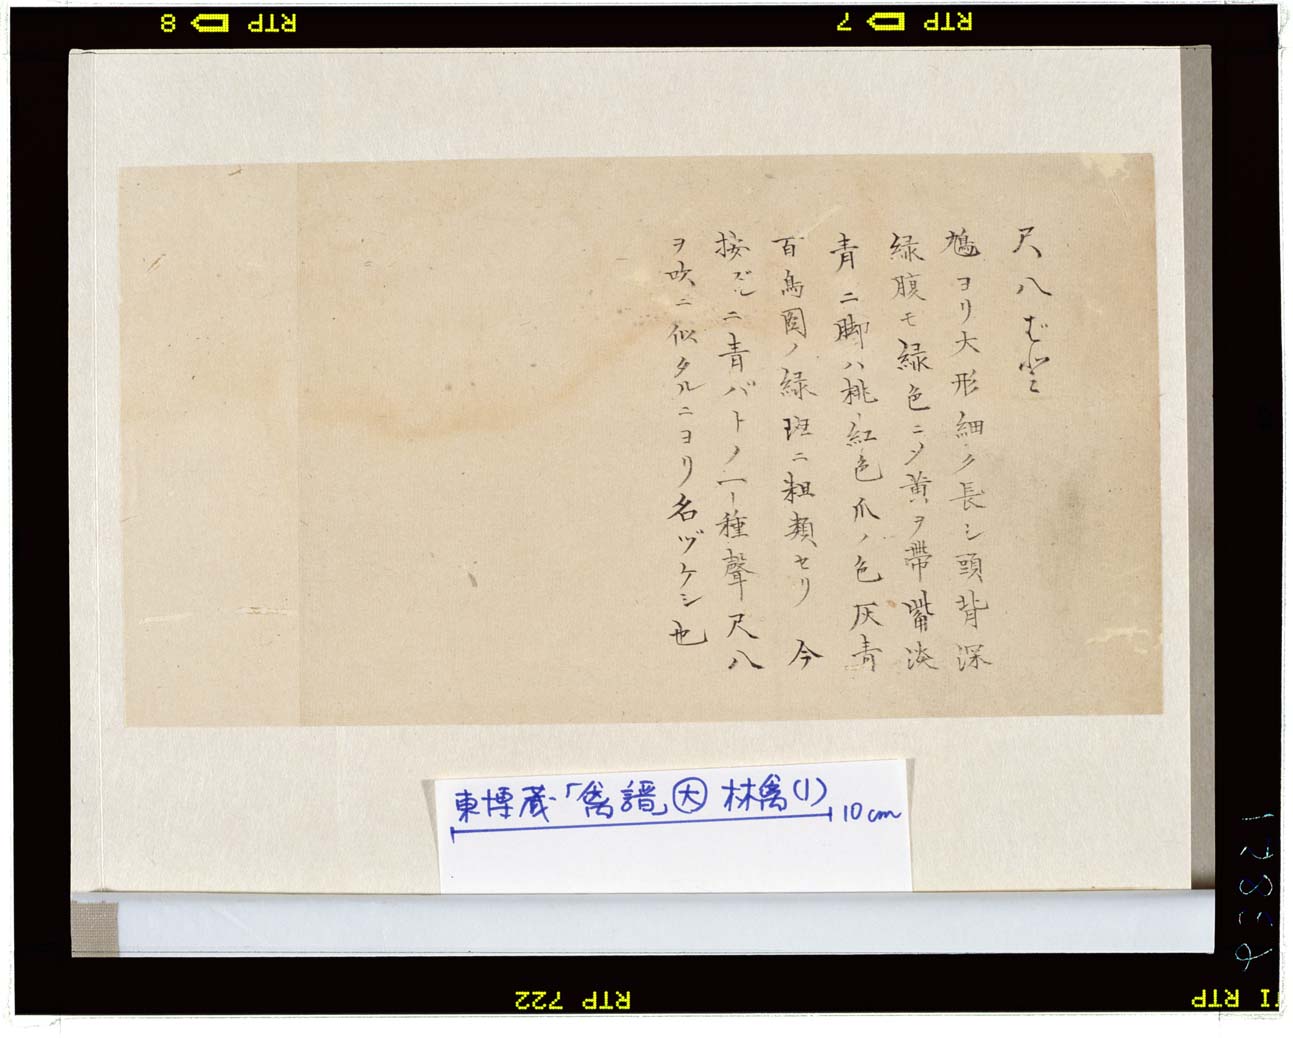 尺八ばと
鳩ヨリ大形細ク長シ頭背深
緑腹モ緑色ニシテ黄ヲ帶嘴淡
青ニ脚ハ桃紅色爪ノ色灰青
百鳥圖ノ緑斑ニ粗類セリ 今
按ズルニ青バトノ一種聲尺八
ヲ吹ニ似タルニヨリ名ヅケシ也
東博蔵「禽譜」大 林禽(1)
10cm
RTP 8
RTP 7
RTP 722
RTP